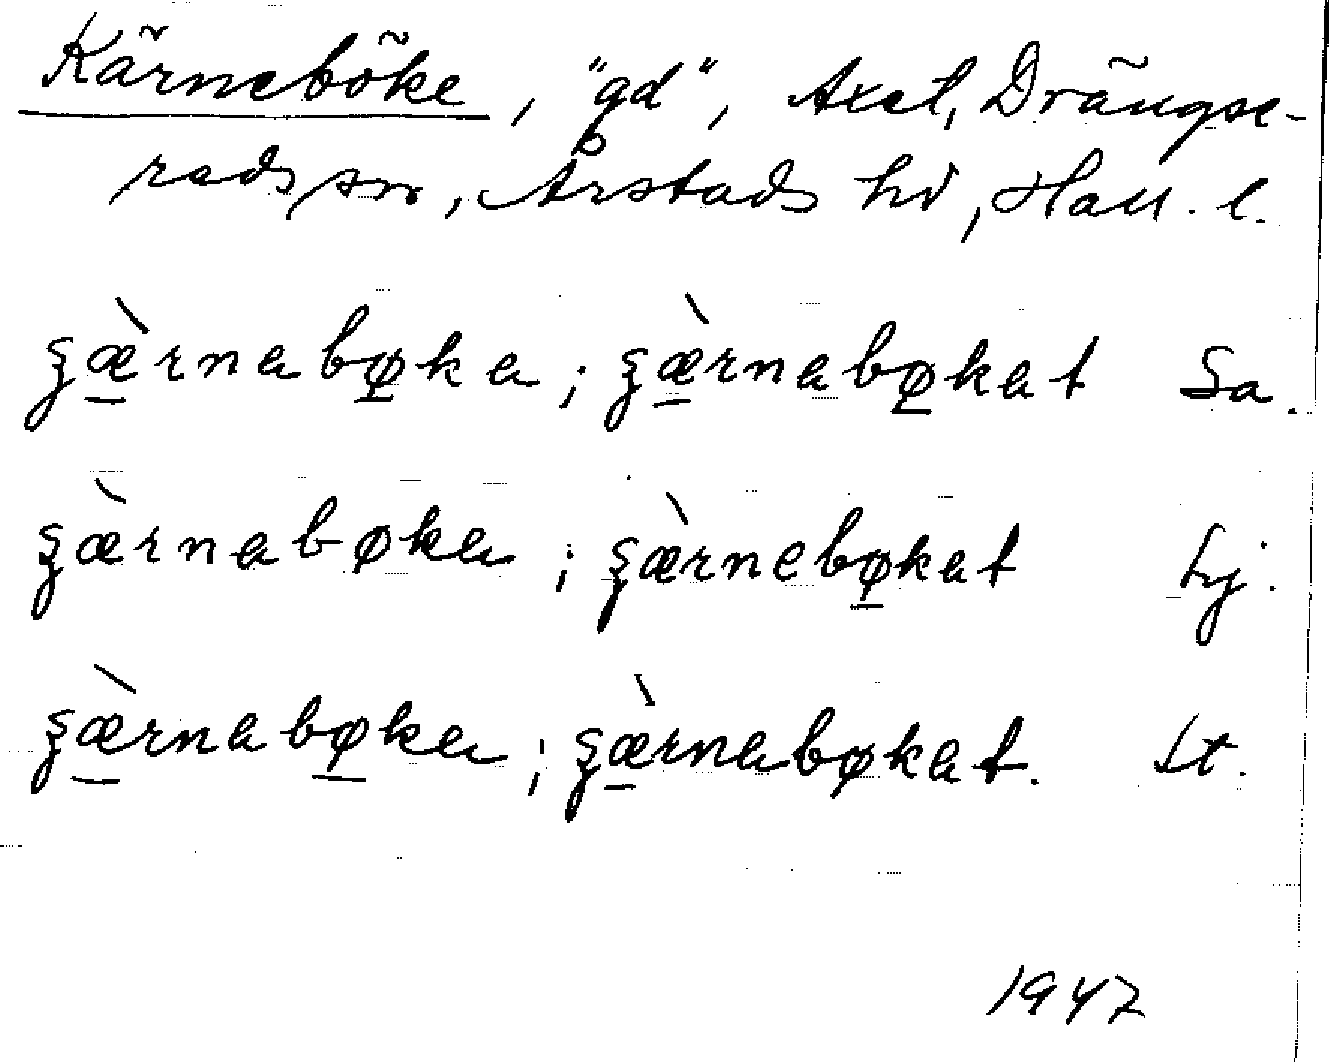 Kärneböke, "gd", Axel, Drängse-
rads sn, Årstads hd, Hall. l.
ʒæ̀rnabøka; ʒæ̀rnabøkat Sa.
ʒæ̀rnabøka; ʒæ̀rnebøkat Lj.
ʒæ̀rnabøka; ʒæ̀rnabøkat. Lt.
1947